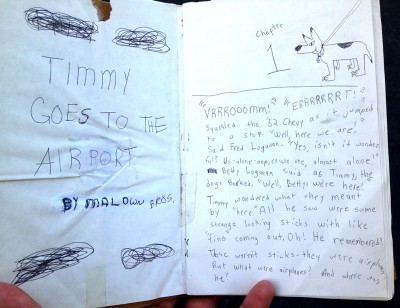 TIMMY
GOES TO THE
AIRPORT
BY MALOWN BROS.
Chapter
1
"VARROOOMM!" "ERARRRRRT!"
Squeeled the '52 Chevy as it jumped
to a stop. "Well, here we are,"
Said Fred Logmann. "Yes, isn't it wonder
ful? Us-alone-oops, excuse me, almost alone!"
Betty Logmann said as Timmy, the
dog, Barked. "Well, Betty, were here!"
Timmy wondered what they meant
by "here." All he saw were some
strange looking sticks with like
"fins" coming out. Oh! He remembered!
Those weren't sticks-they were airplanes.
But what were airplanes? And where was
he?